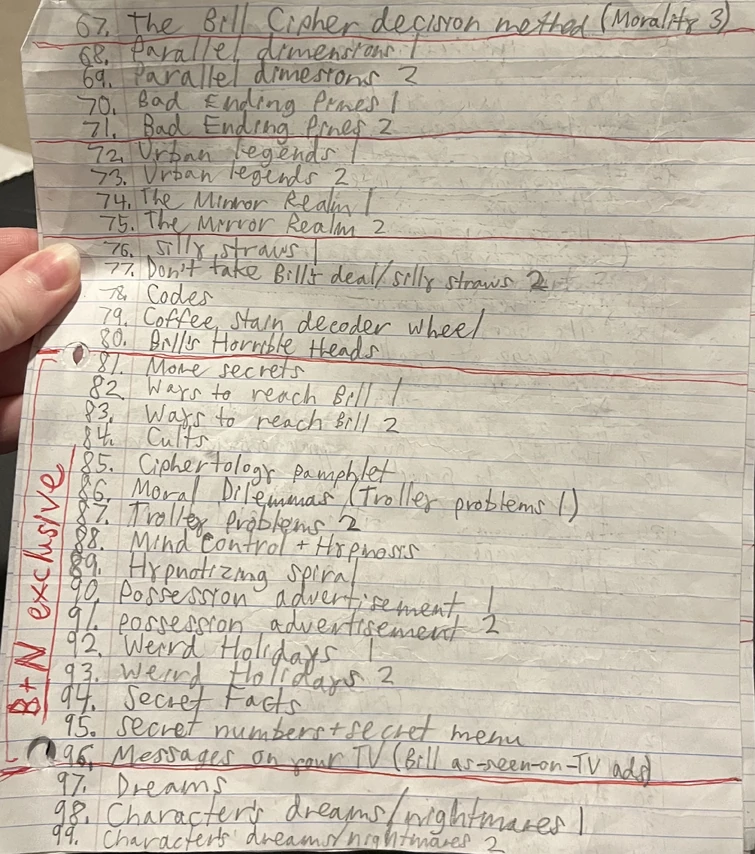 67. The Bill Cipher decision method (Morality 3)
68. Parallel dimensions 1
69. Parallel dimesions 2
70. Bad Ending Pines 1
71. Bad Ending Pines 2
72. Urban legends 1
73. Urban legends 2
74. The Mirror Realm 1
75. The Mirror Realm 2
76. Silly straws 1
77. Don't take Bill's deal/silly straws 2
78. Codes
79. Coffee stain decoder wheel
80. Bill's Horrible Heads
81. More secrets
82. Ways to reach Bill 1
83. Ways to reach Bill 2
84. Cults
85. Ciphertology pamphlet
86. Moral Dilemmas (Trolley problems 1)
87. Trolley Problems 2
88. Mind control + Hypnosis
89. Hypnotizing spiral
90. Possession advertisement 1
91. possession advertisement 2
92. Weird Holidays 1
93. Weird Holidays 2
94. Secret Facts
95. secret numbers + secret menu
96. Messages on your TV (Bill as-seen-on-TV ads)
97. Dreams
98. Character's dreams/nightmares 1
99. Character's dreams/nightmares 2
B+N exclusive